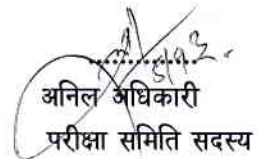 अनिल अधिकारी
परीक्षा समिति सदस्य